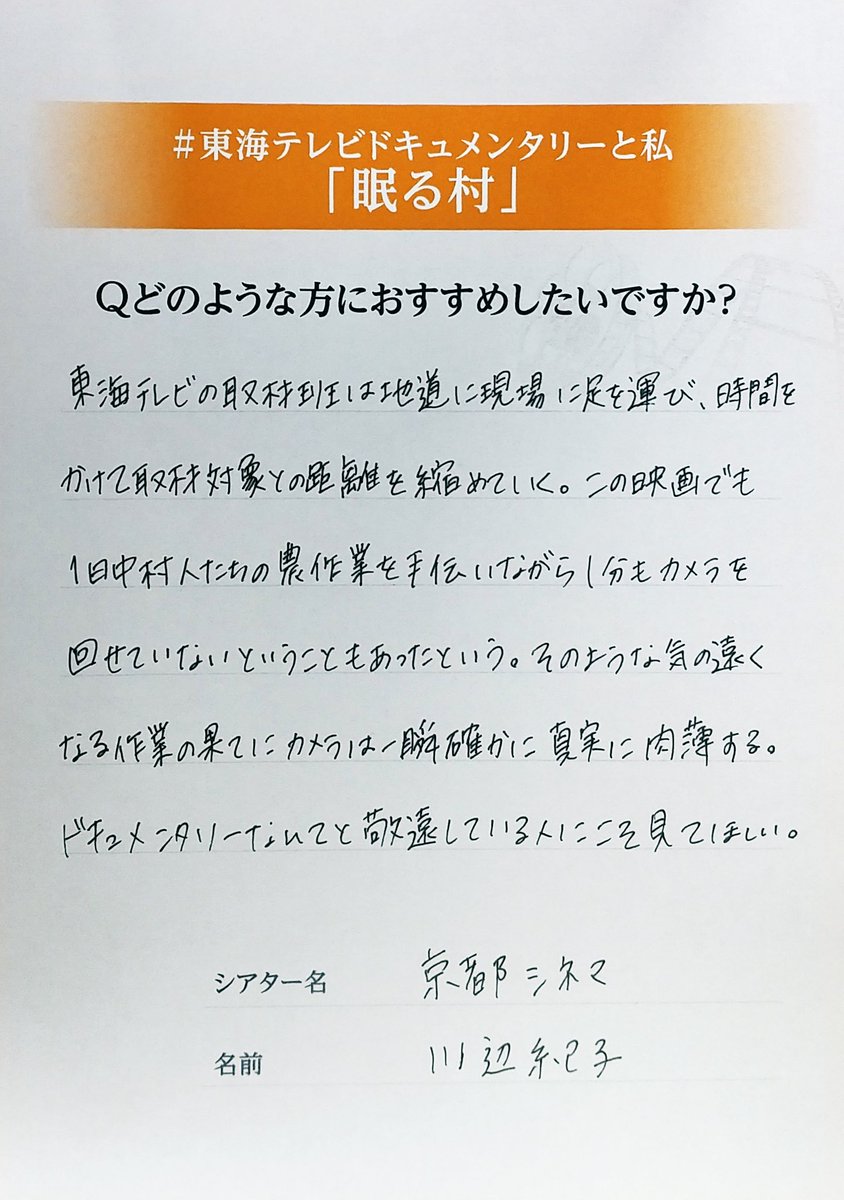 #東海テレビドキュメンタリーと私
「眠る村」
Qどのような方におすすめしたいですか?
東海テレビの取材班は地道に現場に足を運び、時間を
かけて取材対象との距離を縮めていく。この映画でも
1日中村人たちの農作業を手伝いながら1分もカメラを
回せていないということもあったという。そのような気の遠く
なる作業の果てにカメラは一瞬確かに真実に肉薄する。
ドキュメンタリーなんてと敬遠している人にこそ見てほしい。
シアター名 京都シネマ
名前 川辺紀子